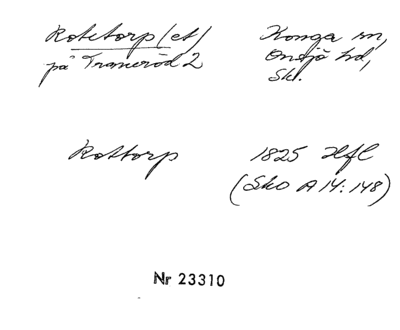 Rotetorp (et) Konga sn,
på Traneröd 2 Onsjö hd,
Sk.
Rottorp 1825 Hfl
(Sko A 14:148)
Nr 23310